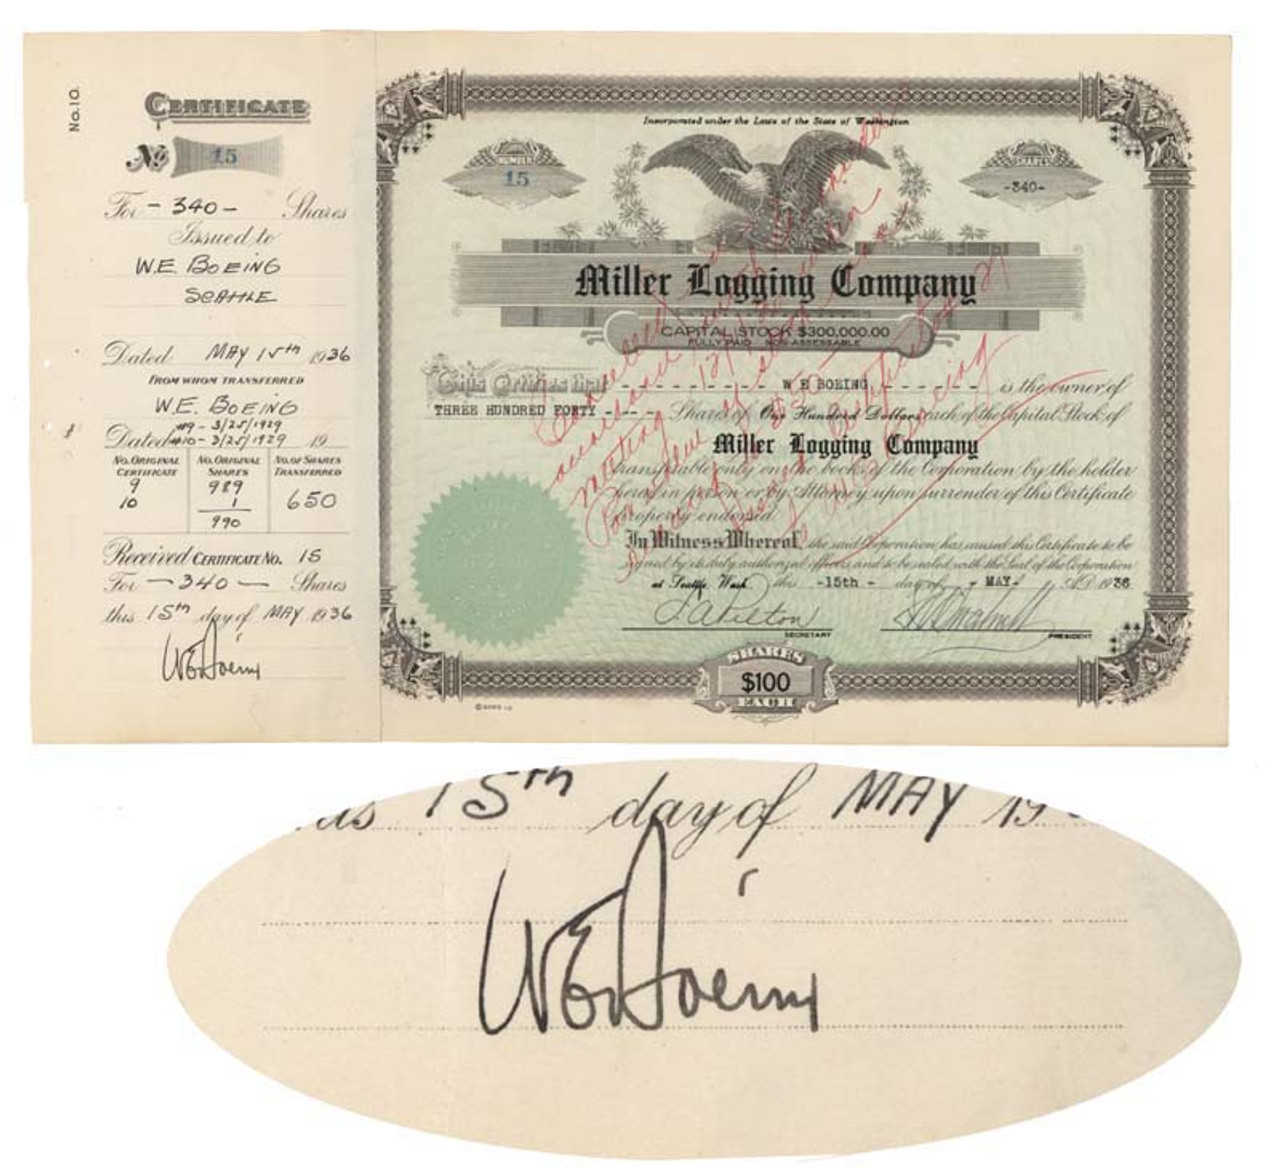 No. 10.
CERTIFICATE
No 15
For - 340 - Shares
Issued to
W.E. BOEING
SEATTLE
Dated MAY 15th 1936
FROM WHOM TRANSFERRED
W.E. BOEING
#9 - 3/25/1929
Dated #10 - 3/25/1929 19
NO. ORIGINAL CERTIFICATE NO. ORIGINAL SHARES NO. OF SHARES TRANSFERRED
9 989 650
10 1
990
Received CERTIFICATE NO. 15
For - 340 - Shares
this 15th day of MAY 1936
WEBoeing
Incorporated under the Laws of the State of Washington
NUMBER
15
SHARES
-340-
Miller Logging Company
CAPITAL STOCK $300,000.00
FULLY PAID NON-ASSESSABLE
This Certifies that - - - - - - - - - W E BOEING - - - - - - is the owner of
THREE HUNDRED FORTY - - - - Shares of One Hundred Dollars each of the Capital Stock of
Miller Logging Company
transferable only on the books of the Corporation by the holder
hereof in person or by Attorney upon surrender of this Certificate
properly endorsed.
In Witness Whereof, the said Corporation has caused this Certificate to be
signed by its duly authorized officers and to be sealed with the Seal of the Corporation
at Seattle, Wash. this -15th - day of - MAY - A.D. 1936
SECRETARY
PRESIDENT
SHARES
$100
EACH
Cancelled
meeting
15th day of MAY 19
WEBoeing